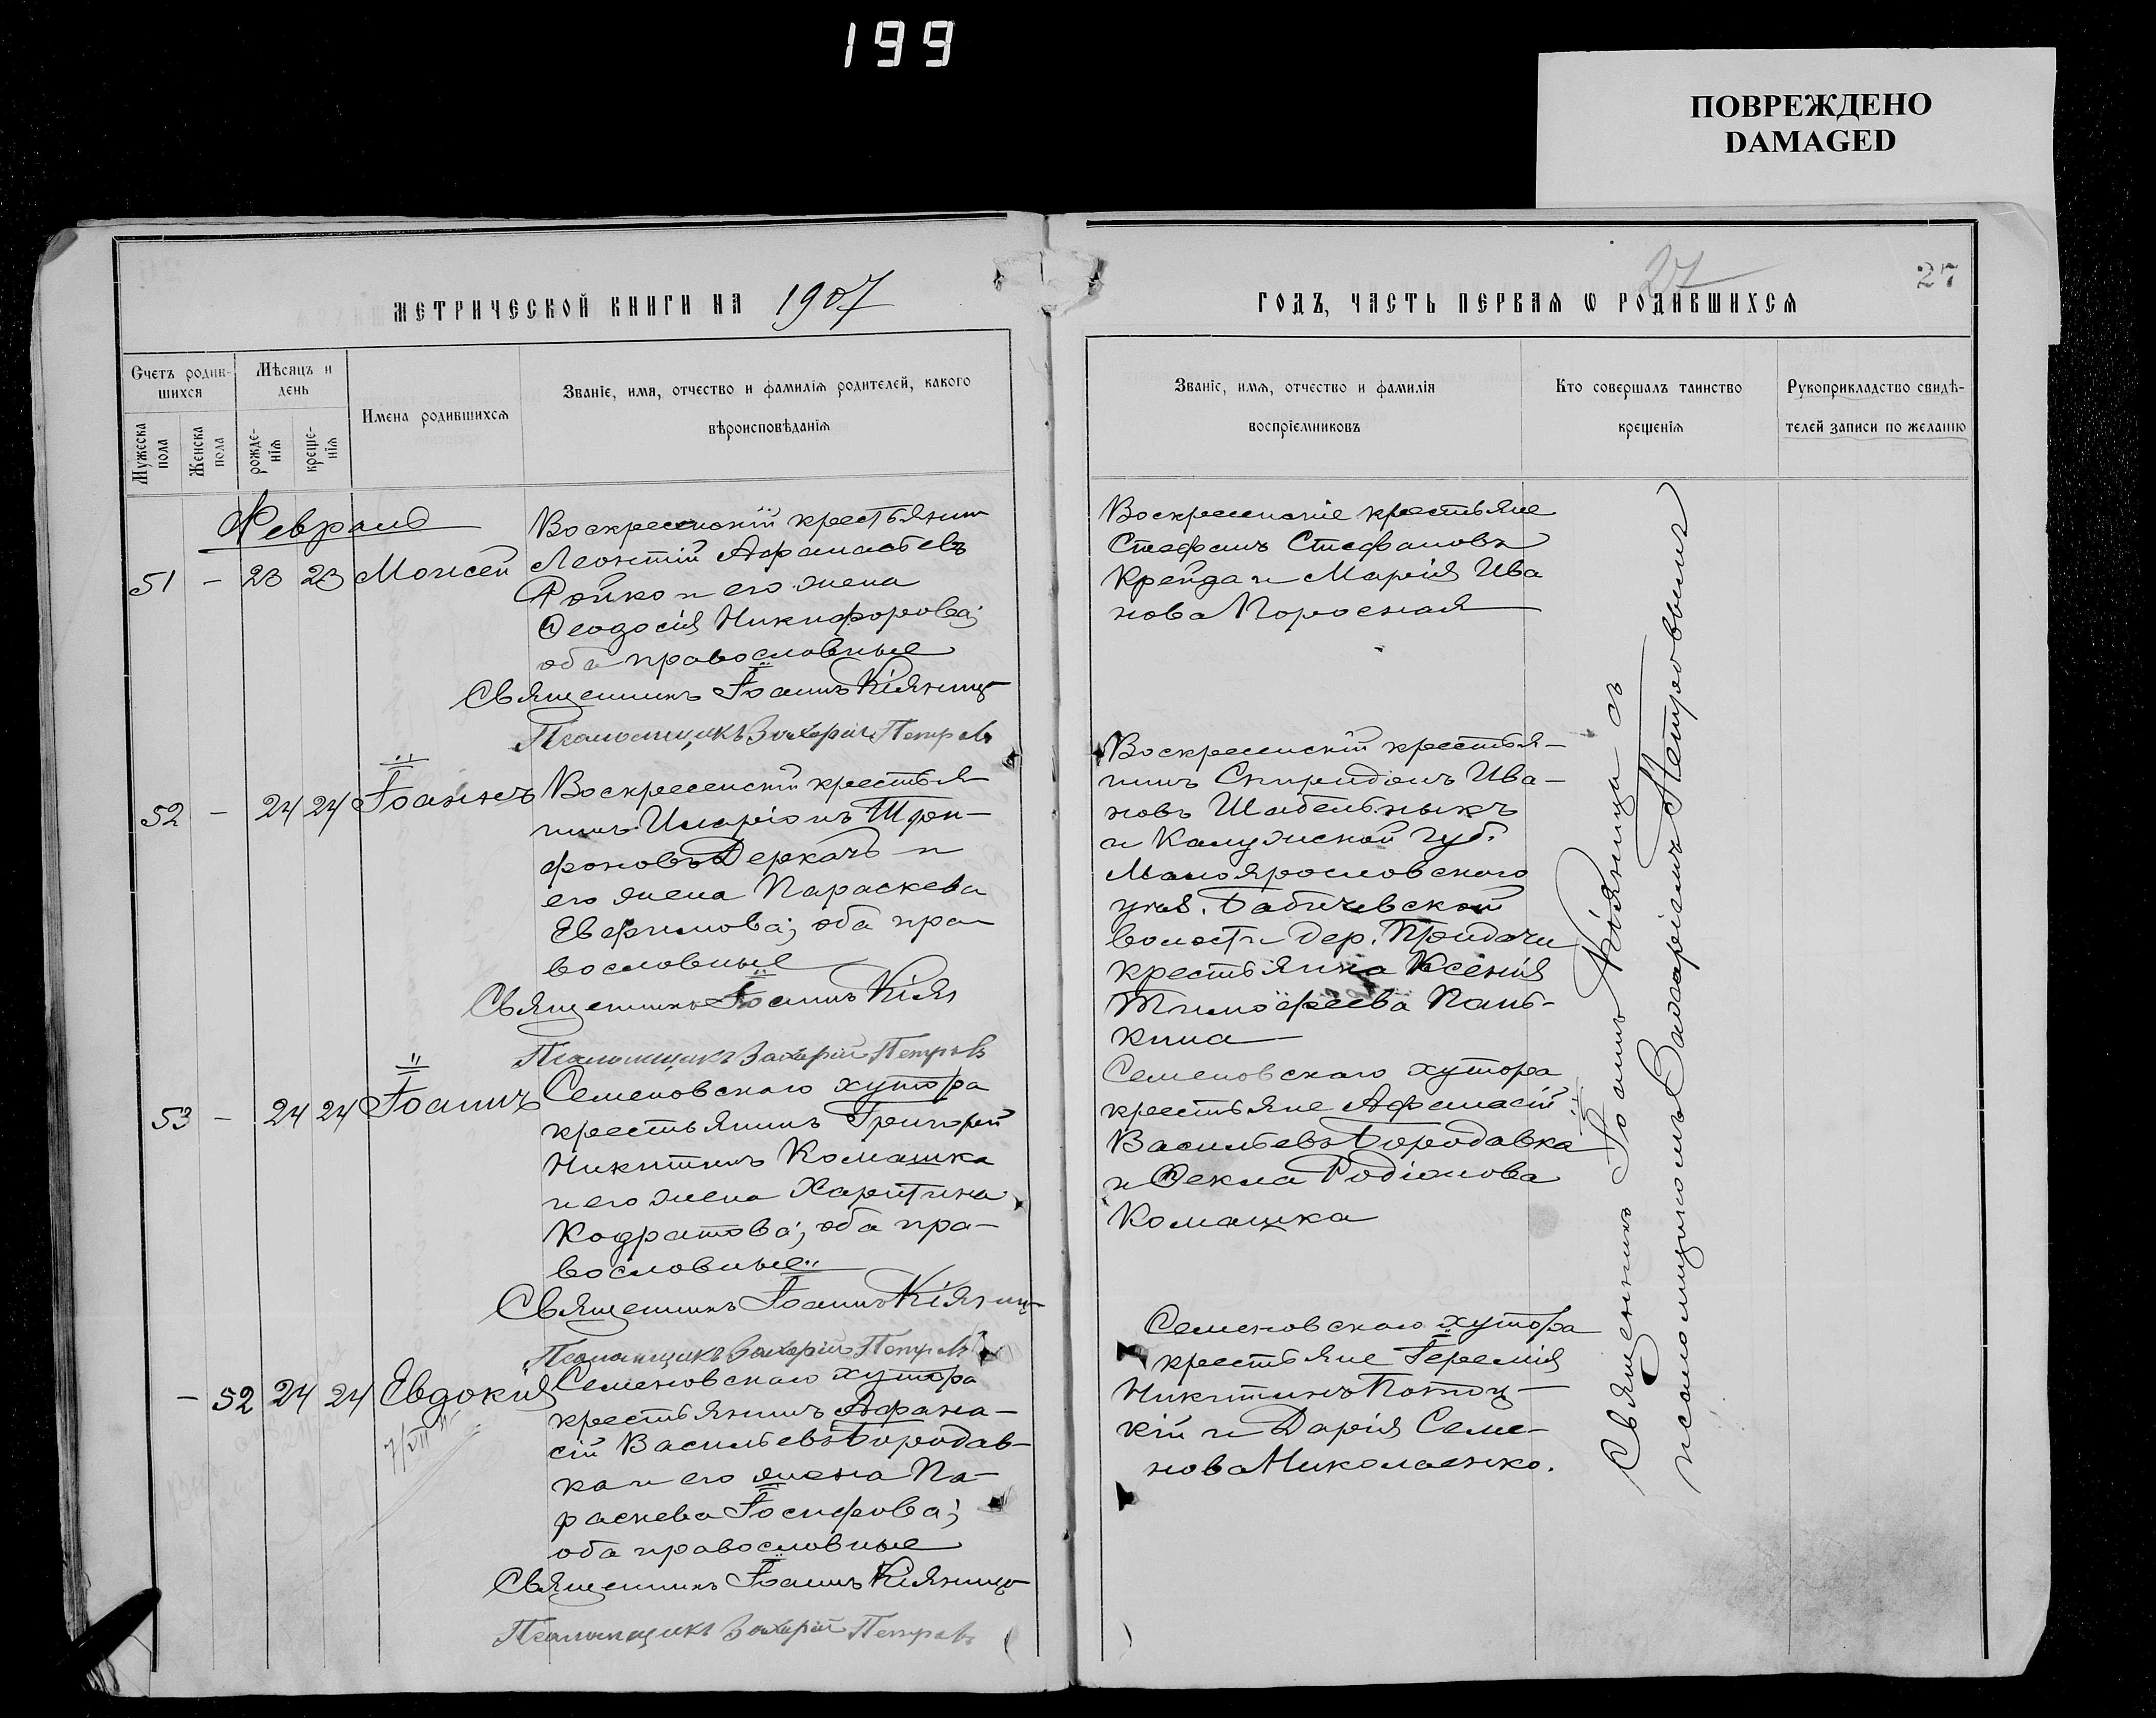 199
ПОВРЕЖДЕНО
DAMAGED
27
27
МЕТРИЧЕСКОЙ КНИГИ НА 1907
ГОДЪ, ЧАСТЬ ПЕРВАЯ Ѡ РОДИВШИХСЯ
Счетъ родив-
шихся
Мужеска
пола
Женска
пола
Мѣсяцъ и
день
рожде-
нія
креще-
нія
Имена родившихся
Званіе, имя, отчество и фамилія родителей, какого
вѣроисповѣданія
Званіе, имя, отчество и фамилія
воспріемниковъ
Кто совершалъ таинство
крещенія
Рукоприкладство свидѣ-
телей записи по желанію
Февраль
51 - 23 23 Моисей
Воскресенскій крестьянинъ
Леонтій Афанасьевъ
Ройко и его жена
Ѳеодосія Никифорова;
оба православные
Священникъ Іоаннъ Кіяница
Псаломщикъ Захарій Петровъ
Воскресенскіе крестьяне
Стефанъ Стефановъ
Крейда и Марія Ива
нова Поросная
52 - 24 24 Іоаннъ
Воскресенскій крестья
нинъ Иларіонъ Триф-
оновъ Деркачъ и
его жена Параскева
Евфимова; оба пра
вославные
Священникъ Іоаннъ Кіян
Псаломщикъ Захарій Петровъ
Воскресенскій крестья-
нинъ Спиридонъ Ива-
новъ Шабельныкъ
и Калужской губ.
Малоярославскаго
уѣз. Бабичевской
волости дер. Придачи
крестьянка Ксенія
Тимофеева Пань-
кина
53 - 24 24 Іоаннъ
Семеновскаго хутора
крестьянинъ Григорій
Никитинъ Комашка
и его жена Харитина
Кодратова; оба пра-
вославные
Священникъ Іоаннъ Кіяниц
Псаломщикъ Захарій Петровъ
Семеновскаго хутора
крестьяне Афанасій
Васильевъ Бородавка
и Ѳекла Родіонова
Комашка
- 52 24 24 Евдокія
7/VII
Семеновскаго хутора
крестьянинъ Афана-
сій Васильевъ Бородав-
ка и его жена Па-
раскева Іосифова;
оба православные
Священникъ Іоаннъ Кіяница
Псаломщикъ Захарій Петровъ
Семеновскаго хутора
крестьяне Іеремія
Никитинъ Потоц-
кій и Дарія Семе-
нова Николаенко.
Священникъ Іоаннъ Кіяница съ
псаломщикомъ Захаріемъ Петровымъ